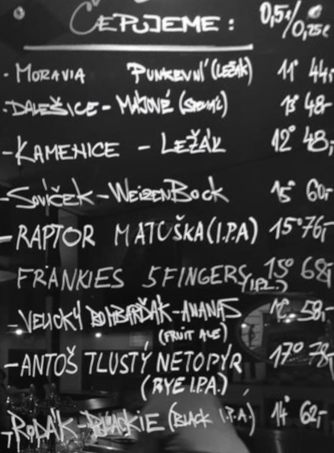 ČEPUJEME: 0,5ℓ/0,25ℓ
- MORAVIA PUNKEVNÍ (LEŽÁK) 11° 44,-
- DALEŠICE - MÁJOVÉ 13° 48,-
- KAMENICE - LEŽÁK 12° 48,-
- SOVIČEK - WEIZENBOCK 15° 60,-
- RAPTOR MATUŠKA (I.P.A) 15° 76,-
FRANKIES 5 FINGERS 15° 68,-
- VELICKÝ BOMBARĎÁK - ANANAS 12° 58,-
(FRUIT ALE)
- ANTOŠ TLUSTÝ NETOPÝR 17° 78,-
(RYE I.P.A.)
- RODÁK - BLACKIE (BLACK I.P.A.) 14° 62,-